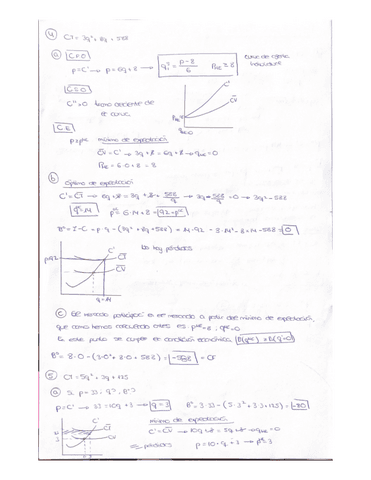 ④ CT = 3q² + 8q + 588
ⓐ C.P.O
p = C' → p = 6q + 8 → q = p-8 / 6   PME ≥ 8   curva de oferta individual
C.S.O
C'' > 0 tramo creciente de
la curva
C.E
p ≥ pME mínimo de explotación
CV = C' → 3q + 8 = 6q + 8 → qME = 0
PME = 6·0 + 8 = 8
ⓑ Óptimo de explotación
C' = CT → 6q + 8 = 3q + 8 + 588/q → 3q - 588/q = 0 → 3q² = 588
q = 14   p = 6·14 + 8 = 92
B = I - C = p·q - (3q² + 8q + 588) = 14·92 - 3·14² - 8·14 - 588 = 0
p=92   C'   CT   CV   No hay pérdidas
q=14
ⓒ El mercado participará en el mercado a partir del mínimo de explotación,
que como hemos calculado antes es pME = 8, qME = 0
En este punto se cumple la condición económica
B = 8·0 - (3·0² + 8·0 + 588) = -588 = CF
⑤ CT = 5q² + 3q + 125
ⓐ Si p = 33
p = C' → 33 = 10q + 3 → q = 3   B = 3·33 - (5·3² + 3·3 + 125) = -80
mínimo de explotación
C' = CV → qME = 0
⇒ pérdidas   p = 10·q + 3 → pME = 3